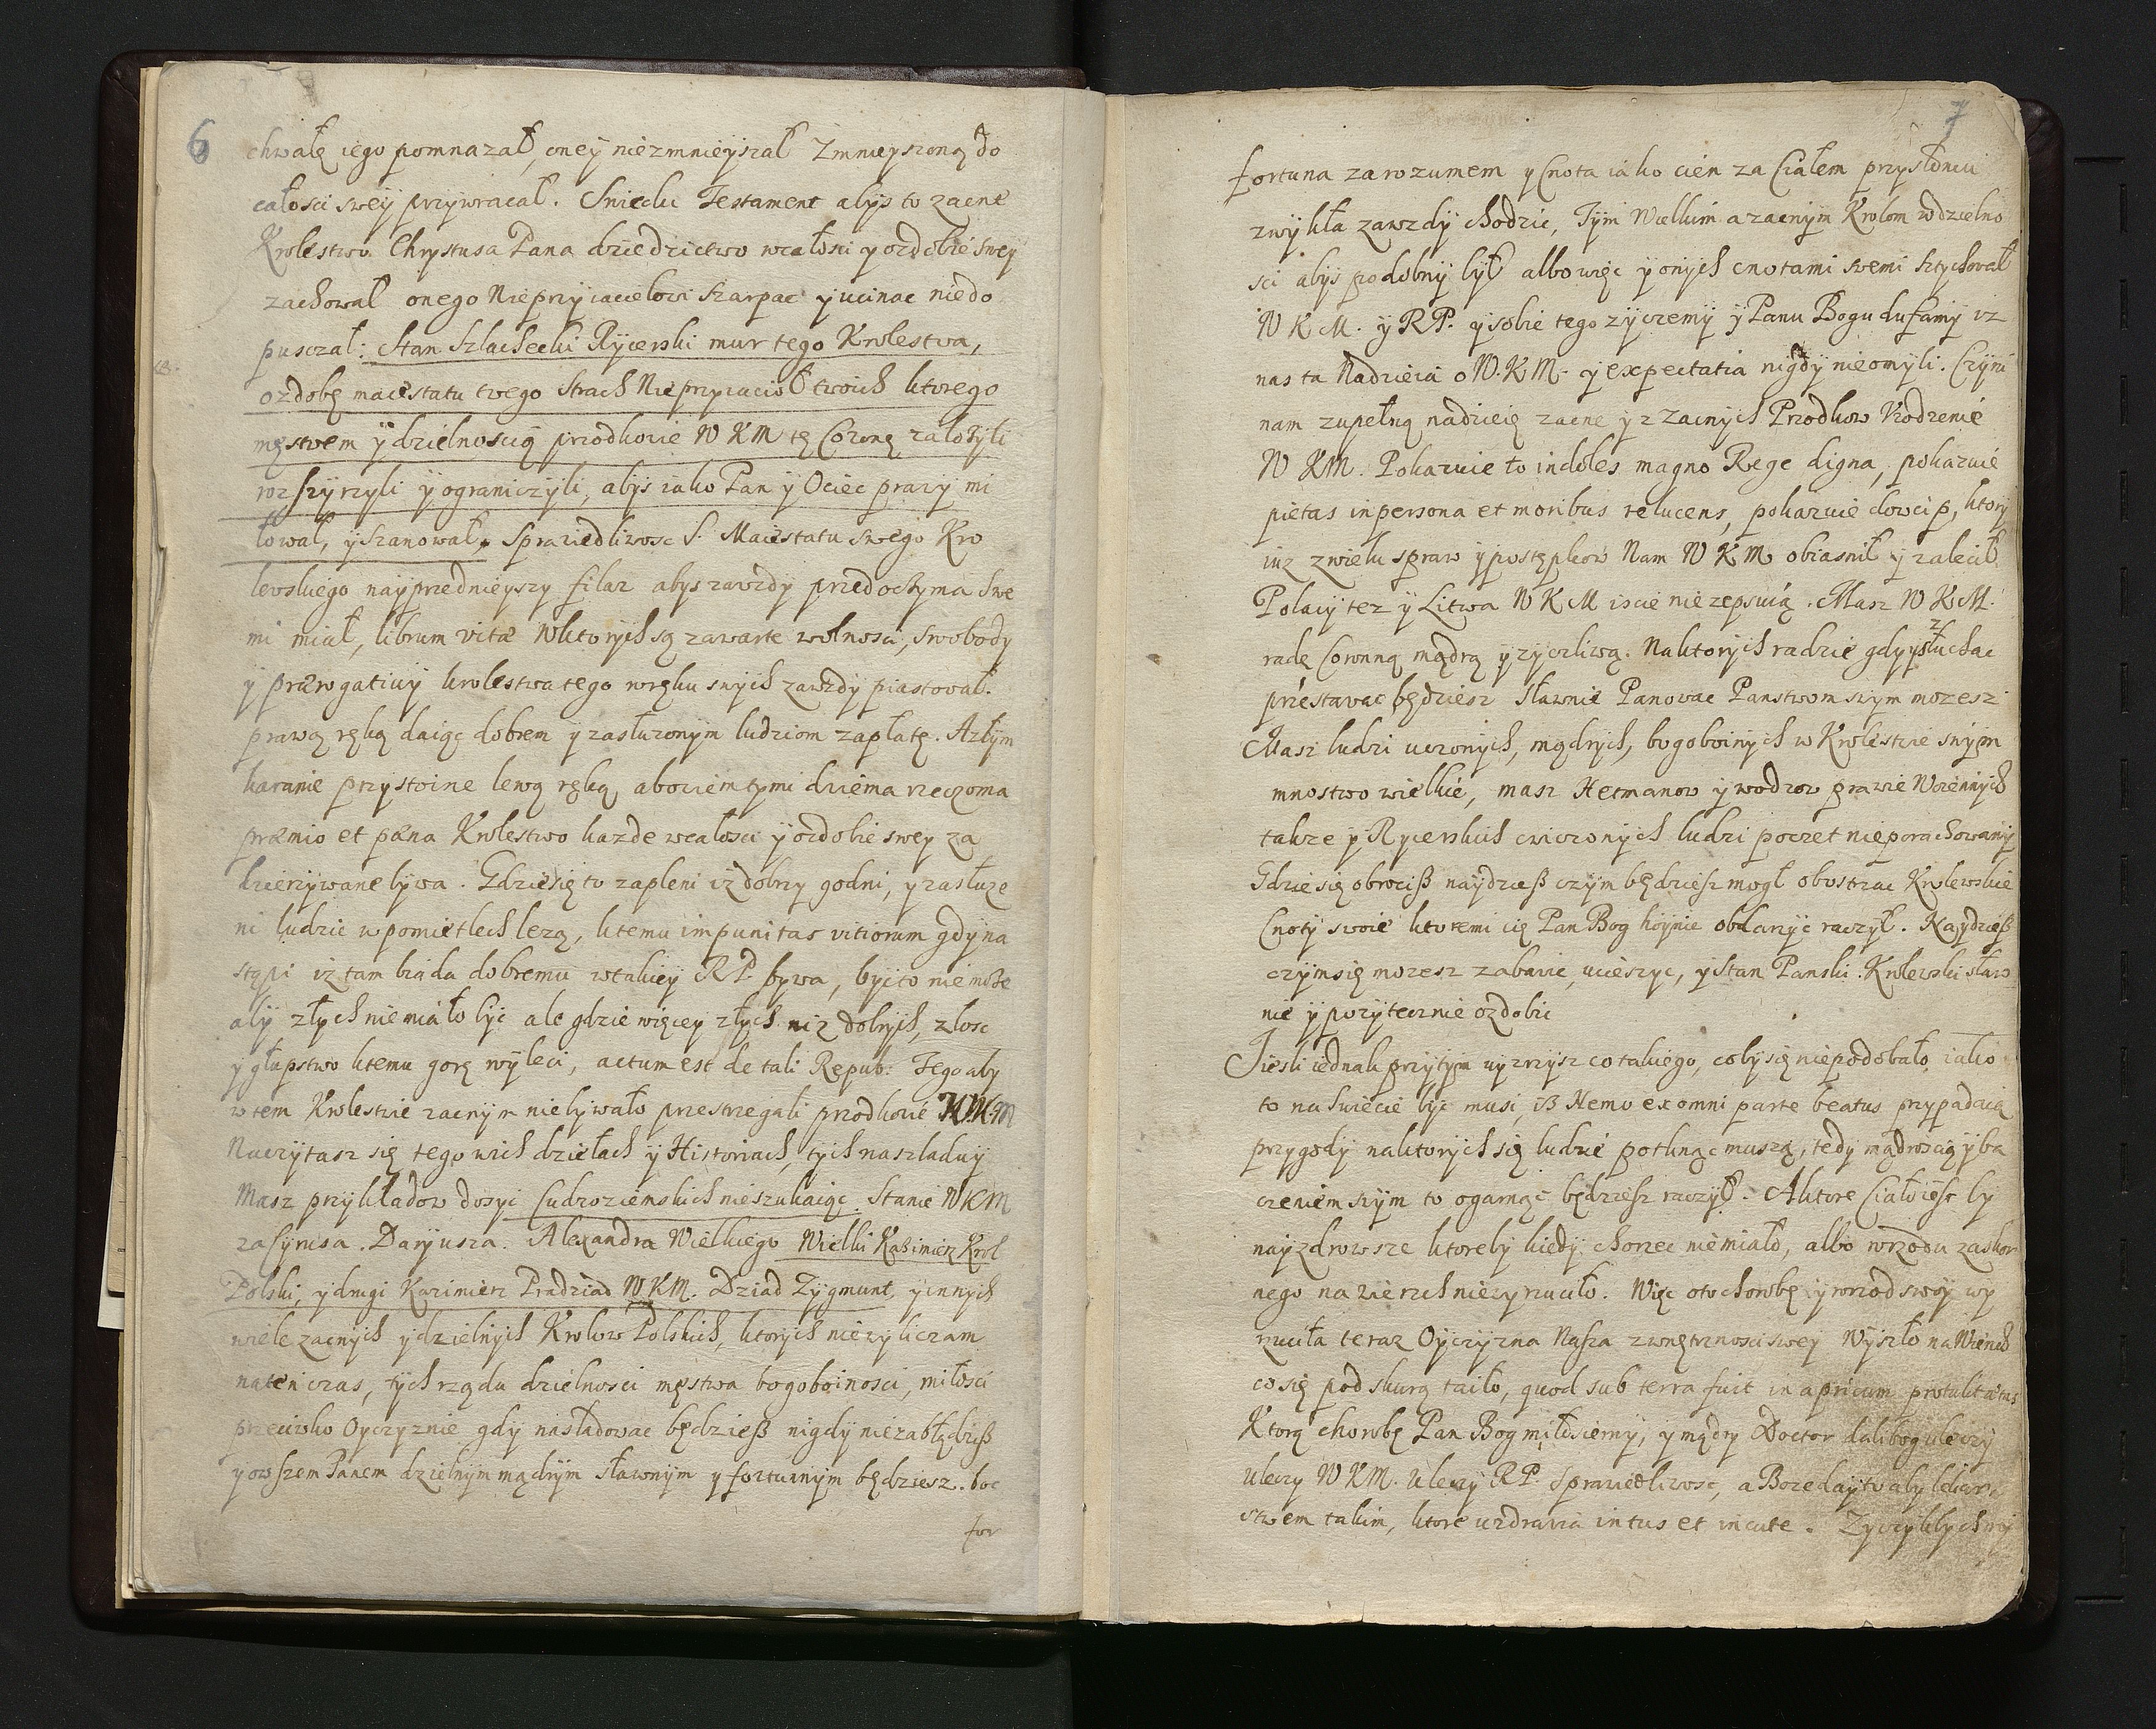 6
chwałę iego pomnazał, oney niezmnieyszał Zmnieyszoną do
całosci swey przywracał. Snieclu Testament abys to zacne
Krolestwo Chrystusa Pana dziedzictwo wcałosci y ozdobie swey
zachował onego Nieprzyiacielowi szarpac y ucinac niedo
pusczal: Stan Szlachecki Rycerski mur tego Krolestwa,
ozdobę maiestatu twego Strach Nieprzyiaciół twoich ktorego
męstwem y dzielnoscią przodkowie W K M tę Coronę założyli
rozszyrzyli y ograniczyli, abys iako Pan y Ociec prawy mi
łował, y szanował, Sprawiedliwosc S. Maiestatu swego Kro
lewskiego nayprzednieyszy filar abys zawzdy przedoczyma swe
mi miał, librum vitæ wktorych są zawarte wolnosci, swobody
y prærogatiwy krolestwa tego wręku swych zawzdy piastował.
prawą ręką daiąc dobrem y zasłuzonym ludziom zapłatę. Azłym
karanie przystoine lewą ręką, abowiem tymi dwiema rzeczoma
præmio et pæna Krolestwo kazde wcałosci y ozdobie swey za
dzierzywane bywa. Gdzie się to zapleni iz dobrzy godni, y zasłuze
ni ludzie w pomietlech lezą, ktemu impunitas vitiorum gdy na
stąpi iz tam biada dobremu wtakiey RP. bywa, być to nie może
aby złych nie miało byc ale gdzie więcey złych niz dobrych, złosc
y głupstwo ktemu gorę wyleci, actum est de tali Repub: Tego aby
w tem Krolestwie zacnym niebywało przestrzegali przodkowie W.K.M
Naczytasz się tego wich dziełach y Historiach, tych naszladuy
Masz przykładow dosyc Cudroziemskich nieszukaiąc. Stanie W K M
za Cyrusa. Daryusza. Alexandra Wielkiego Wielki Kaźimierz Krol
Polski, y drugi Kazimierz Pradziad W K M. Dziad Zygmunt, y innych
wiele zacnych y dzielnych Krolow Polskich, ktorych niewyliczam
naten czas, tych rządu dzielnosci męstwa bogoboinosci, miłosci
przeciwko Oyczyznie gdy nasladowac będzieß nigdy niezabłędziß
y owszem Panem dzielnym mądrym sławnym y fortunnym będziesz. boc
for
7
fortuna za rozumem y Cnota iako cien za Ciałem przysłoniu
zwykła zawzdy chodzic, Tym Wielkim a zacnym Krolom wdzielno
sci abys podobny był albo więc y onych cnotami swemi sztychował
W K M. y RP. y sobie tego zyczemy y Panu Bogu dufamy iz
nas ta Nadzieia o W.K.M. y expectatia nigdy nieomyli. Czyni
nam zupełną nadzieię zacne y z zacnych Przodkow Vrodzenie
W KM. Pokazuie to indoles magno Rege digna, pokazuie
pietas in persona et moribus relucens, pokazuie dowcip, ktory
iuz zwielu spraw y postępkow Nam W K M obiasnił y zalecił
Polacy tez y Litwa W K M iscie niezepsuią. Masz W K M.
radę Coronną mądrą y zyczliwą. Naktorych radzie gdyzysłuchac
przestawac będziesz Sławnie Panowac Panstwom swym mozesz
Masz ludzi uczonych, mądrych, bogoboinych w Krolestwie swym
mnostwo wielkie, masz Hetmanow y wodzow prawie Woiennych
takze y Rycerskich cwiczonych ludzi poczet nieporachowany
Gdzie się obrociß naydzieß czym będziesz mogł obostrzac Krolewskie
Cnoty swoie ktoremi cię Pan Bog hoynie obdarzyc raczył. Naydzieß
czymsię mozesz zabawic, ucieszyc, y Stan Panski. Krolewski sław
nie y pozytecznie ozdobic
Jiesli iednak przytym uyzrzysz co takiego, coby się niepodobało, iako
to na swiecie byc musi, iß Nemo ex omni parte beatus przypadaią
przygody naktorych się ludzie potknąc muszą, tedy mądroscią y ba
czeniem swym to ogarnąc będziesz raczył. A ktore Ciało iest by
nayzdrowsze ktoreby kiedy chorzec niemiało, albo wrzodu zaskor
nego na wierzch niewyrzuciło. Więc oto chorobę y wrzod swoy wy
rzuciła teraz Oyczyzna Nasza zwnętrznosci swey Wyszło na Wierzch
co się pod skurą taiło, quod sub terra fuit in apricum protulit ætas
Ktorą chorobę Pan Bog miłosierny, y mądry Doctor dalibog uleczy
Uleczy W KM. Uleczy RP. Sprawiedliwosc, a Boze day to aby lekar
stwem takim, ktore uzdrawia intus et in cute. Zyczyłbych moy